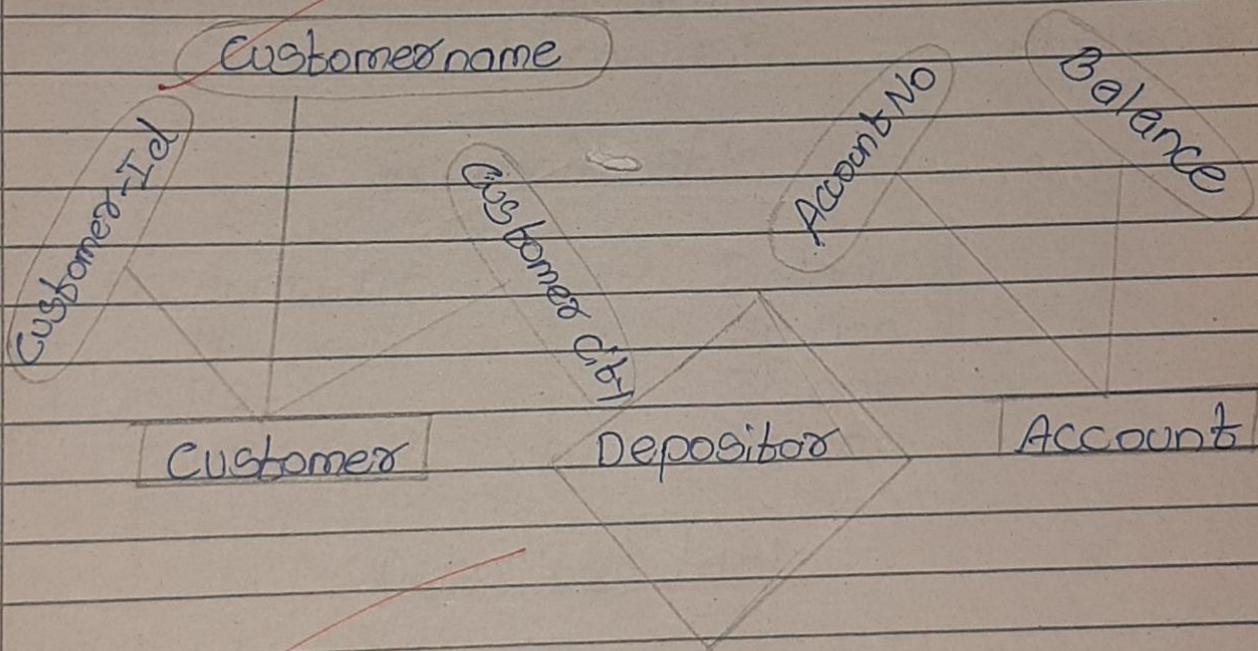 Customer name
Customer-Id
Customer City
Account No
Balance
Customer
Depositor
Account